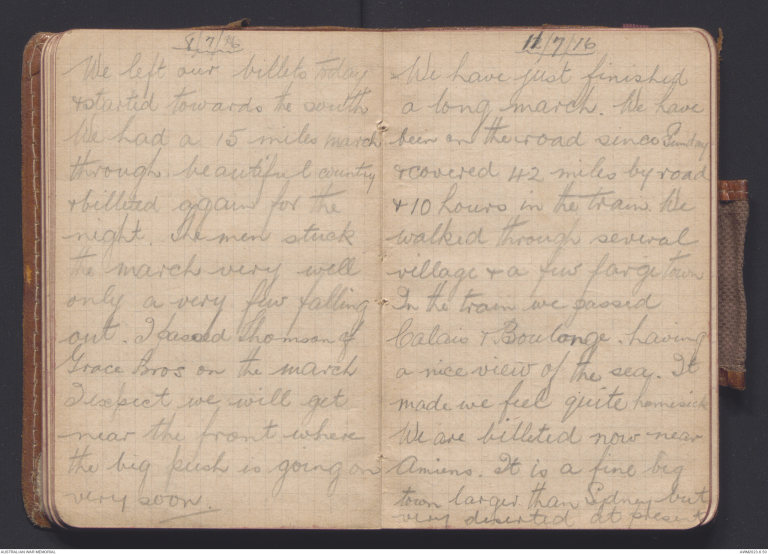 8/7/16
We left our billets today
& started towards the south
We had a 15 miles march
through beautiful country
& billeted again for the
night. The men stuck
the march very well
only a very few falling
out. I passed Thomson of
Grace Bros on the march
I expect we will get
near the front where
the big push is going on
very soon.
11/7/16
We have just finished
a long march. We have
been on the road since Sunday
& covered 42 miles by road
& 10 hours in the train. We
walked through several
village & a few large town
In the train we passed
Calais & Boulange. having
a nice view of the sea. It
made we feel quite homesick
We are billeted now near
Amiens. It is a fine big
town larger than Sydney but
very deserted at present
AUSTRALIAN WAR MEMORIAL